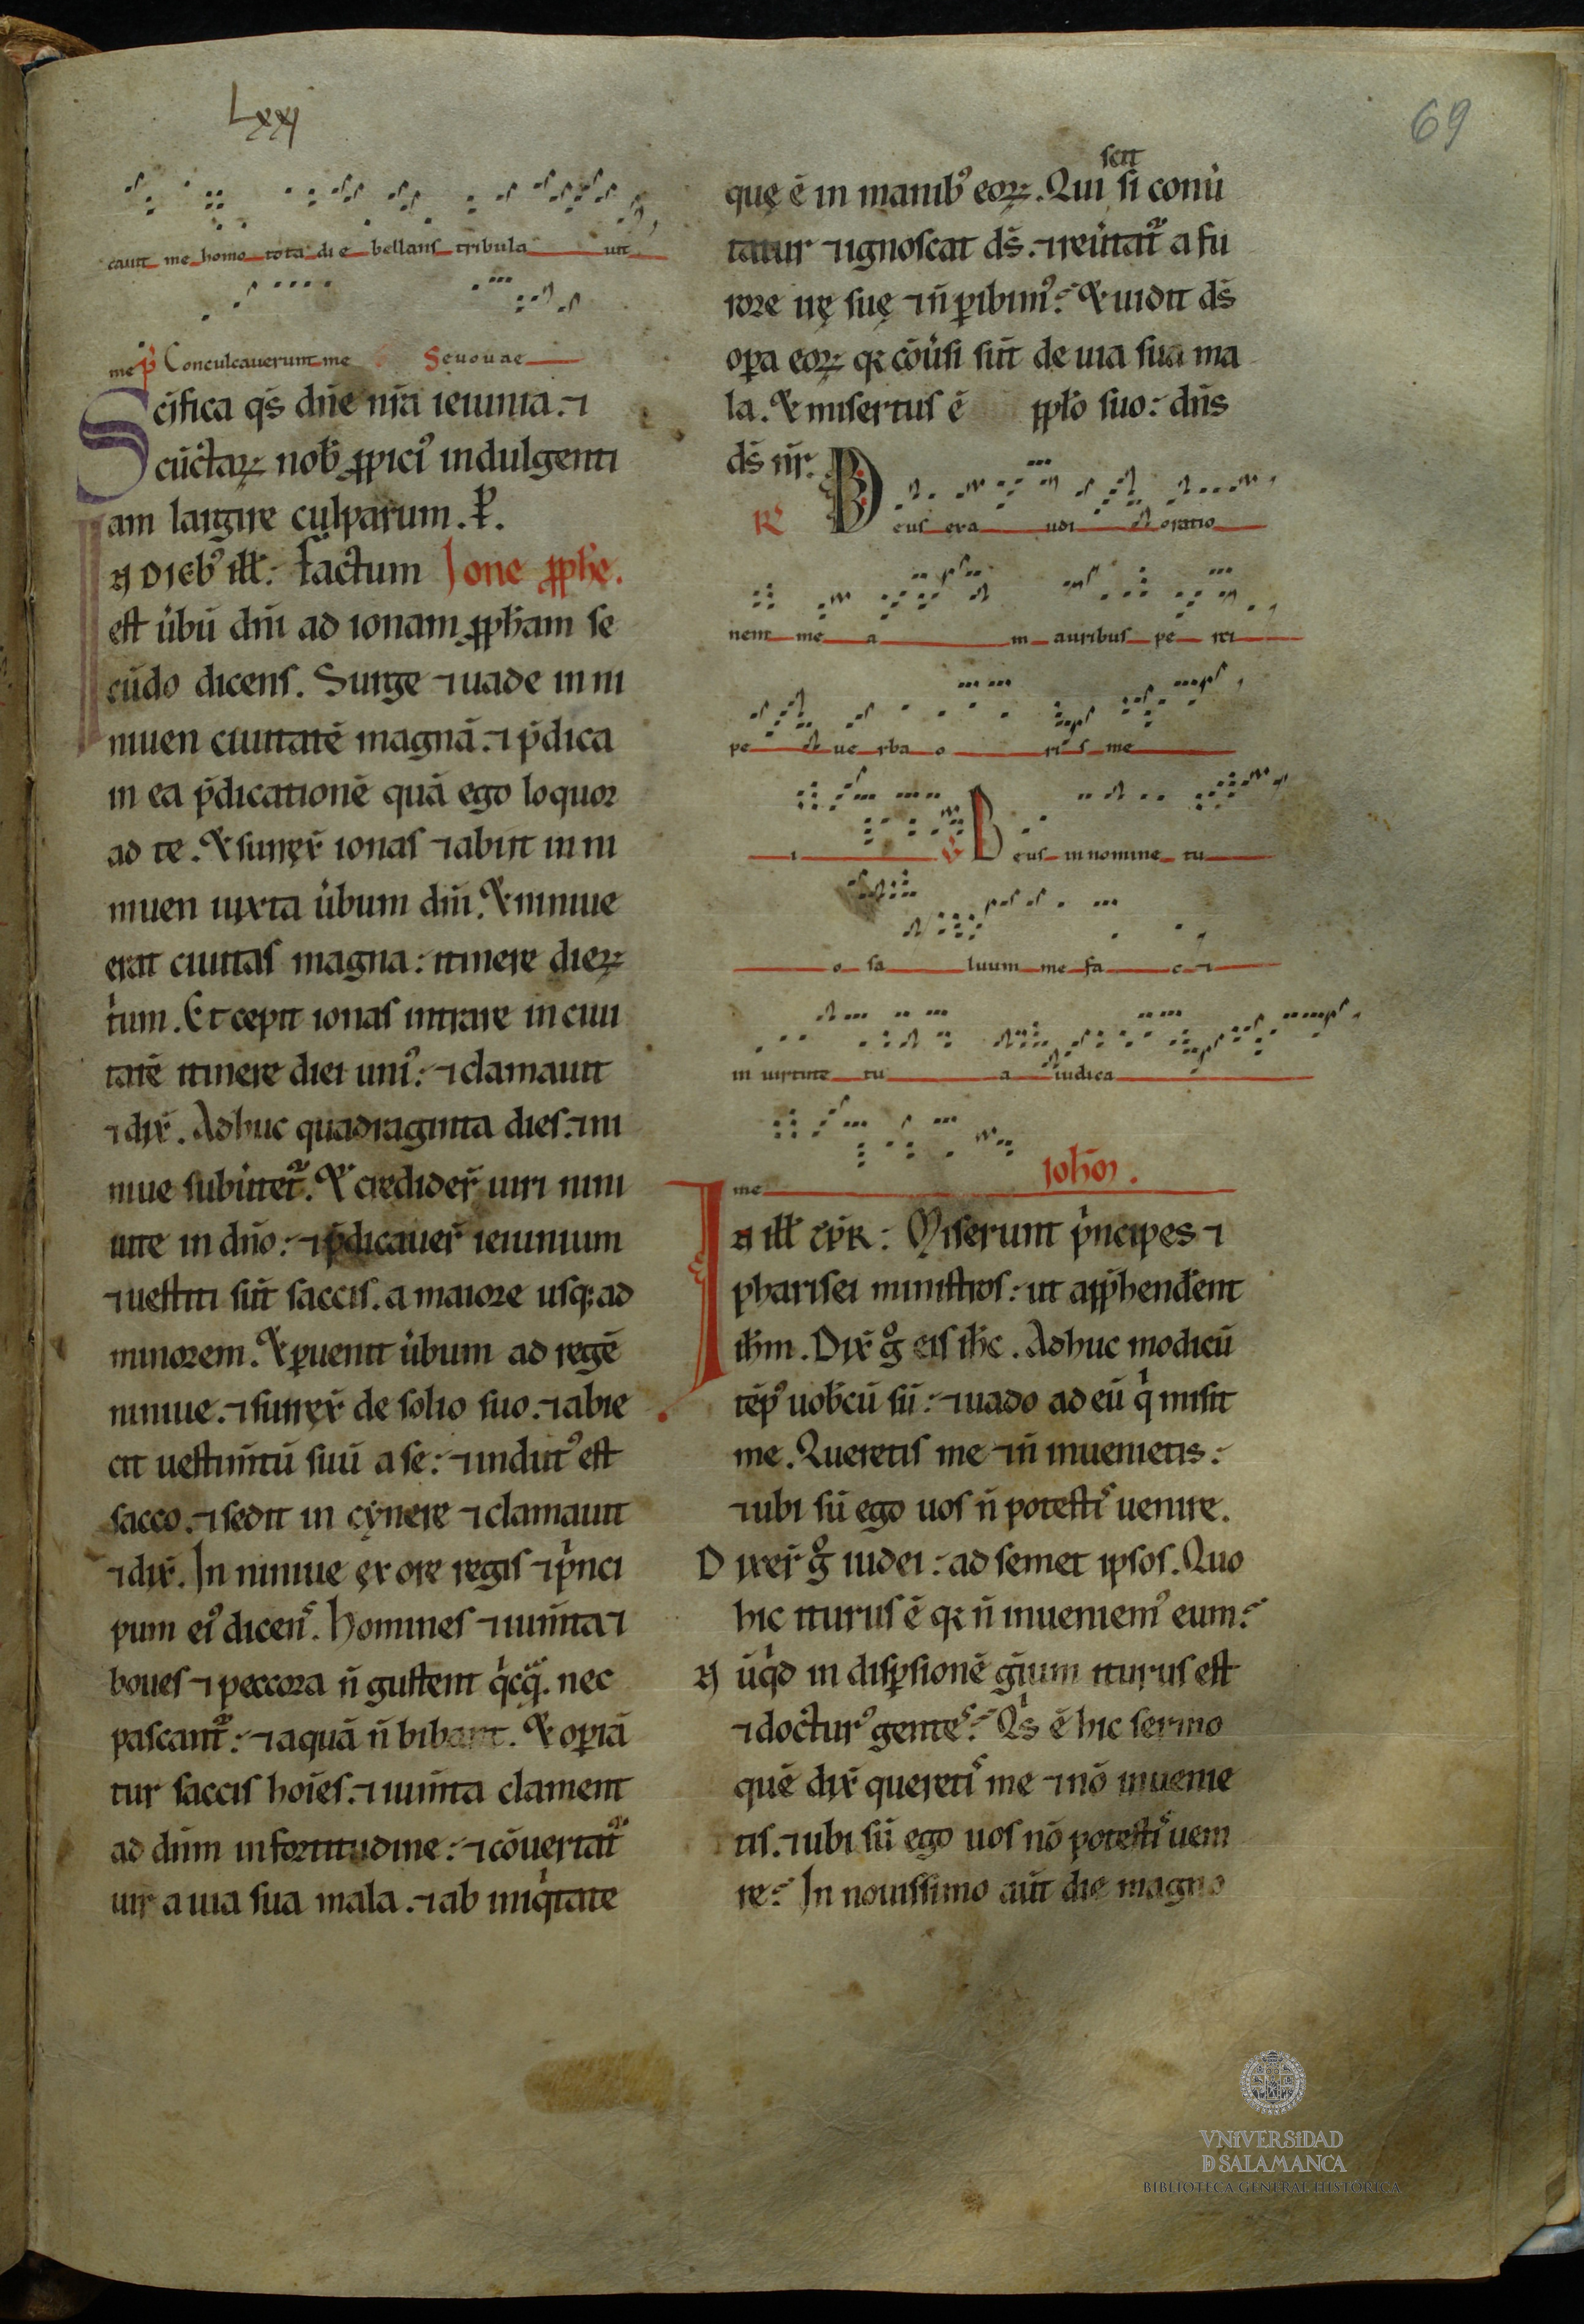 Lxxj
69
cauit me homo tota die bellans tribula uit
me p̃ Conculcauerunt me Seuouae
Scĩfica q̃s dñe nr̃a ieiunia. ⁊
cũctaꝝ nob̃ ꝓpici᾽ indulgenti
am largire culparum. P̃.
IN DIEB᾽ ill̃: factum Ione ꝓph̃e.
est ũbũ dñi ad ionam ꝓph̃am se
cũdo dicens. Surge ⁊ uade in ni
niuen ciuitatẽ magnã. ⁊ p̃dica
in ea p̃dicationẽ quã ego loquor
ad te. Et surrex̃ ionas ⁊ abiit in ni
niuen iuxta ũbum dñi. Et niniue
erat ciuitas magna: itinere dieꝝ
tⁱum. Et cepit ionas intrare in ciui
tatẽ itinere diei uni᾽: ⁊ clamauit
⁊ dix̃. Adhuc quadraginta dies. ⁊ ni
niue subũtet᷑. Et credider̃ uiri nini
uite in dño: ⁊ p̃dicauer̃ ieiunium
⁊ uestiti sũt saccis. a maiore usq; ad
minorem. Et ꝑuenit ũbum ad regẽ
niniue. ⁊ surrex̃ de solio suo. ⁊ abie
cit uestim̃tũ suũ a se: ⁊ indut᾽ est
sacco. ⁊ sedit in cynere ⁊ clamauit
⁊ dix̃. In niniue ex ore regis ⁊ pⁱnci
pum ei᾽ dicens̃. Homines ⁊ ium̃ta ⁊
boues ⁊ peccora ñ gustent qⁱcq̃. nec
pascant᷑: ⁊ aquã ñ bibant. Et oꝑiã
tur saccis hoĩes. ⁊ ium̃ta clament
ad dñm in fortitudine: ⁊ cõuertat᷑
uir a uia sua mala. ⁊ ab iniqⁱtate
scit
quę ẽ in manib᾽ eoꝝ. Qui si conũ
tatur ⁊ ignoscat ds̃. ⁊ reũtat᷑ a fu
rore irę suę ⁊ ñ ꝑibim᾽: Et uidit ds̃
oꝑa eoꝝ qꝛ cõũsi sũt de uia sua ma
la. Et misertus ẽ ppl̃o suo: dñs
ds̃ nr̃.
R᾽ Deus exa udi oratio
nem me a m auribus pe rci
pe uerba o ri s me
i V̄ Deus in nomine tu
o sa luum me fa c ⁊
in uirtute tu a iudica
me Ioh̃m.
IN ill̃ tp̃r: Miserunt pⁱncipes ⁊
pharisei ministros: ut app̃hend̃ent
ih̃m. Dix̃ g̊ eis ih̃c. Adhuc modicũ
tẽp᾽ uob̃cũ sũ: ⁊ uado ad eũ qⁱ misit
me. Queretis me ⁊ ñ inuenietis:
⁊ ubi sũ ego uos ñ potestis uenire.
Dixer̃ g̊ iudei: ad semet ipsos. Quo
hic iturus ẽ qꝛ ñ inueniem᾽ eum:
Nũqⁱd in disꝑsionẽ gñium iturus est
⁊ doctur᾽ gentes: Qⁱs ẽ hic sermo
quẽ dix̃ queretis me ⁊ nõ inuenie
tis. ⁊ ubi sũ ego uos nõ potestis ueni
re: In nouissimo aũt die magno
VNiVERSiDAD
D SALAMANCA
BIBLIOTECA GENERAL HISTÓRICA